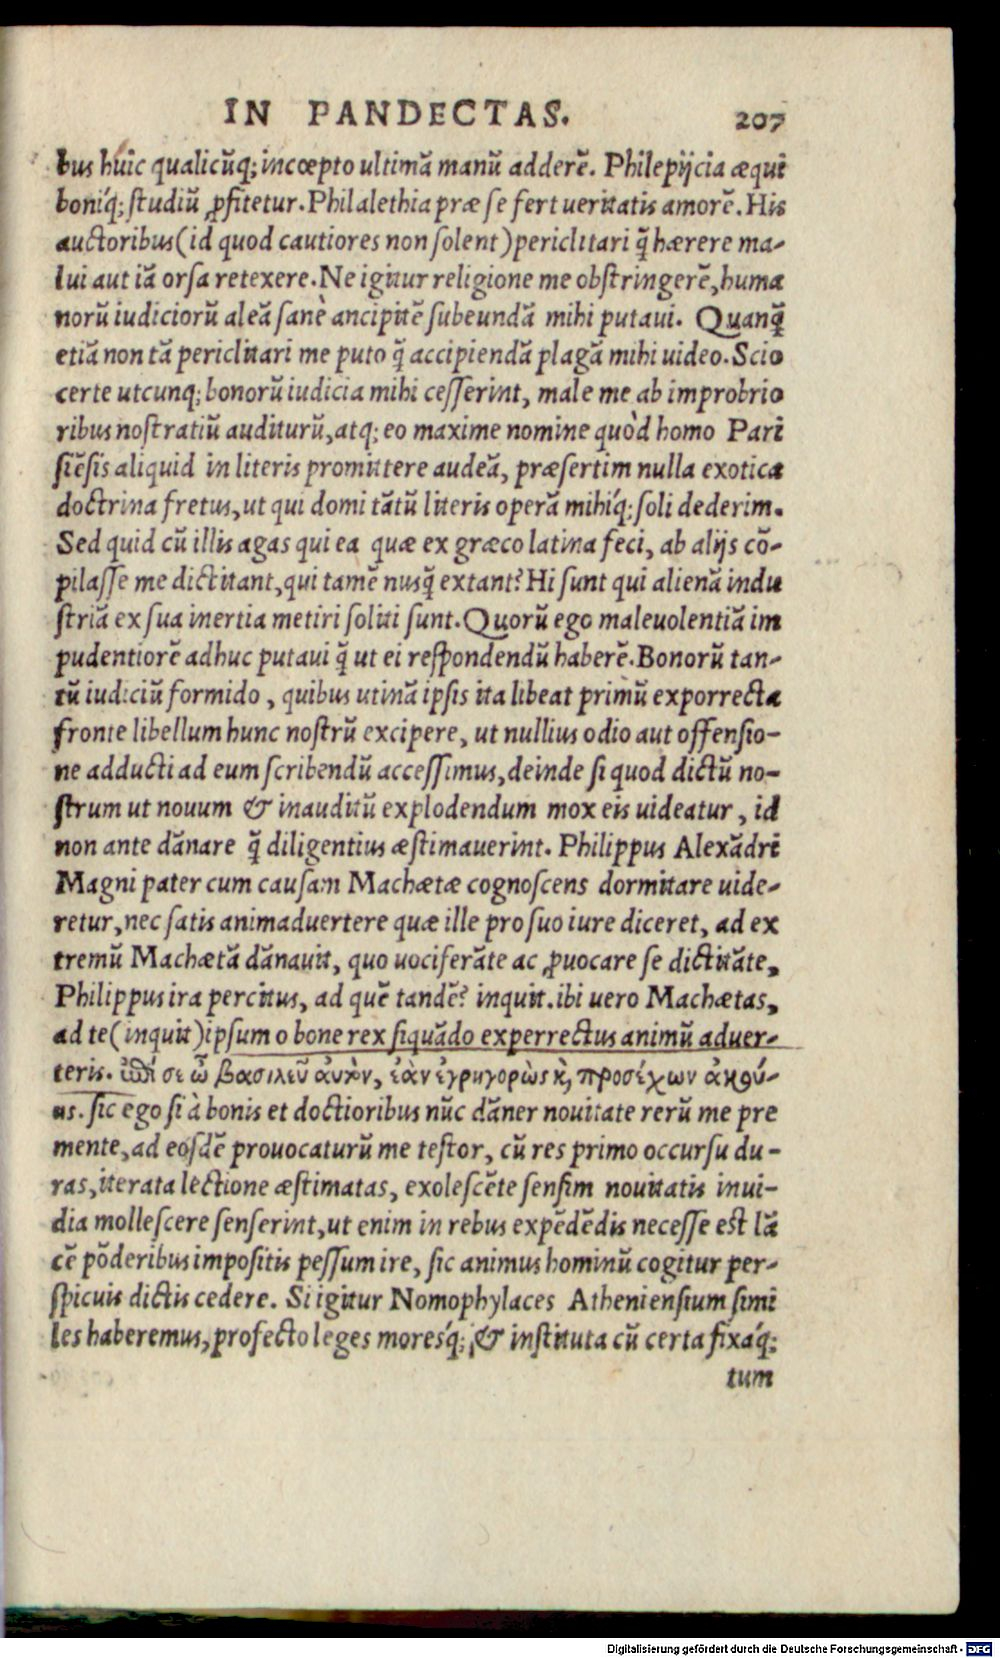 IN PANDECTAS. 207
bus huic qualicūq; incœpto ultimā manū adderē. Philepijcia æqui
boniq́; studiū ꝓfitetur. Philalethia præ se fert ueritatis amorē. His
auctoribus (id quod cautiores non solent) periclitari q̄̃ hærere ma-
lui aut iā orsa retexere. Ne igitur religione me obstringerē, huma
norū iudiciorū aleā sanè ancipitē subeundā mihi putaui. Quanq̄̃
etiā non tā periclitari me puto q̄̃ accipiendā plagā mihi uideo. Scio
certe utcunq; bonorū iudicia mihi cesserint, male me ab improbrio
ribus nostratiū auditurū, atq; eo maxime nomine quòd homo Pari
siēsis aliquid in literis promittere audeā, præsertim nulla exotica
doctrina fretus, ut qui domi tātū literis operā mihiq́; soli dederim.
Sed quid cū illis agas qui ea quæ ex græco latina feci, ab alijs cō-
pilasse me dictitant, qui tamē nusq̄̃ extant? Hi sunt qui alienā indu
striā ex sua inertia metiri soliti sunt. Quorū ego maleuolentiā im
pudentiorē adhuc putaui q̄̃ ut ei respondendū haberē. Bonorū tan-
tū iudiciū formido, quibus utinā ipsis ita libeat primū exporrecta
fronte libellum hunc nostrū excipere, ut nullius odio aut offensio-
ne adducti ad eum scribendū accessimus, deinde si quod dictū no-
strum ut nouum & inauditū explodendum mox eis uideatur, id
non ante dānare q̄̃ diligentius æstimauerint. Philippus Alexādri
Magni pater cum causam Machætæ cognoscens dormitare uide-
retur, nec satis animaduertere quæ ille pro suo iure diceret, ad ex
tremū Machætā dānauit, quo uociferāte ac ꝓuocare se dictitāte,
Philippus ira percitus, ad quē tandē? inquit. ibi uero Machætas,
ad te (inquit) ipsum o bone rex siquādo experrectus animū aduer-
teris. ἐπί σε ὦ βασιλεῦ αὐτὸν, ἐὰν ἐγρηγορὼς κ̀, προσέχων ἀκȣ́-
ῃς. sic ego si à bonis et doctioribus nūc dāner nouitate rerū me pre
mente, ad eosdē prouocaturū me testor, cū res primo occursu du-
ras, iterata lectione æstimatas, exolescēte sensim nouitatis inui-
dia mollescere senserint, ut enim in rebus expēdēdis necesse est lā
cē pōderibus impositis pessum ire, sic animus hominū cogitur per-
spicuis dictis cedere. Si igitur Nomophylaces Atheniensium simi
les haberemus, profecto leges moresq́; & instituta cū certa fixaq́;
tum
Digitalisierung gefördert durch die Deutsche Forschungsgemeinschaft - DFG